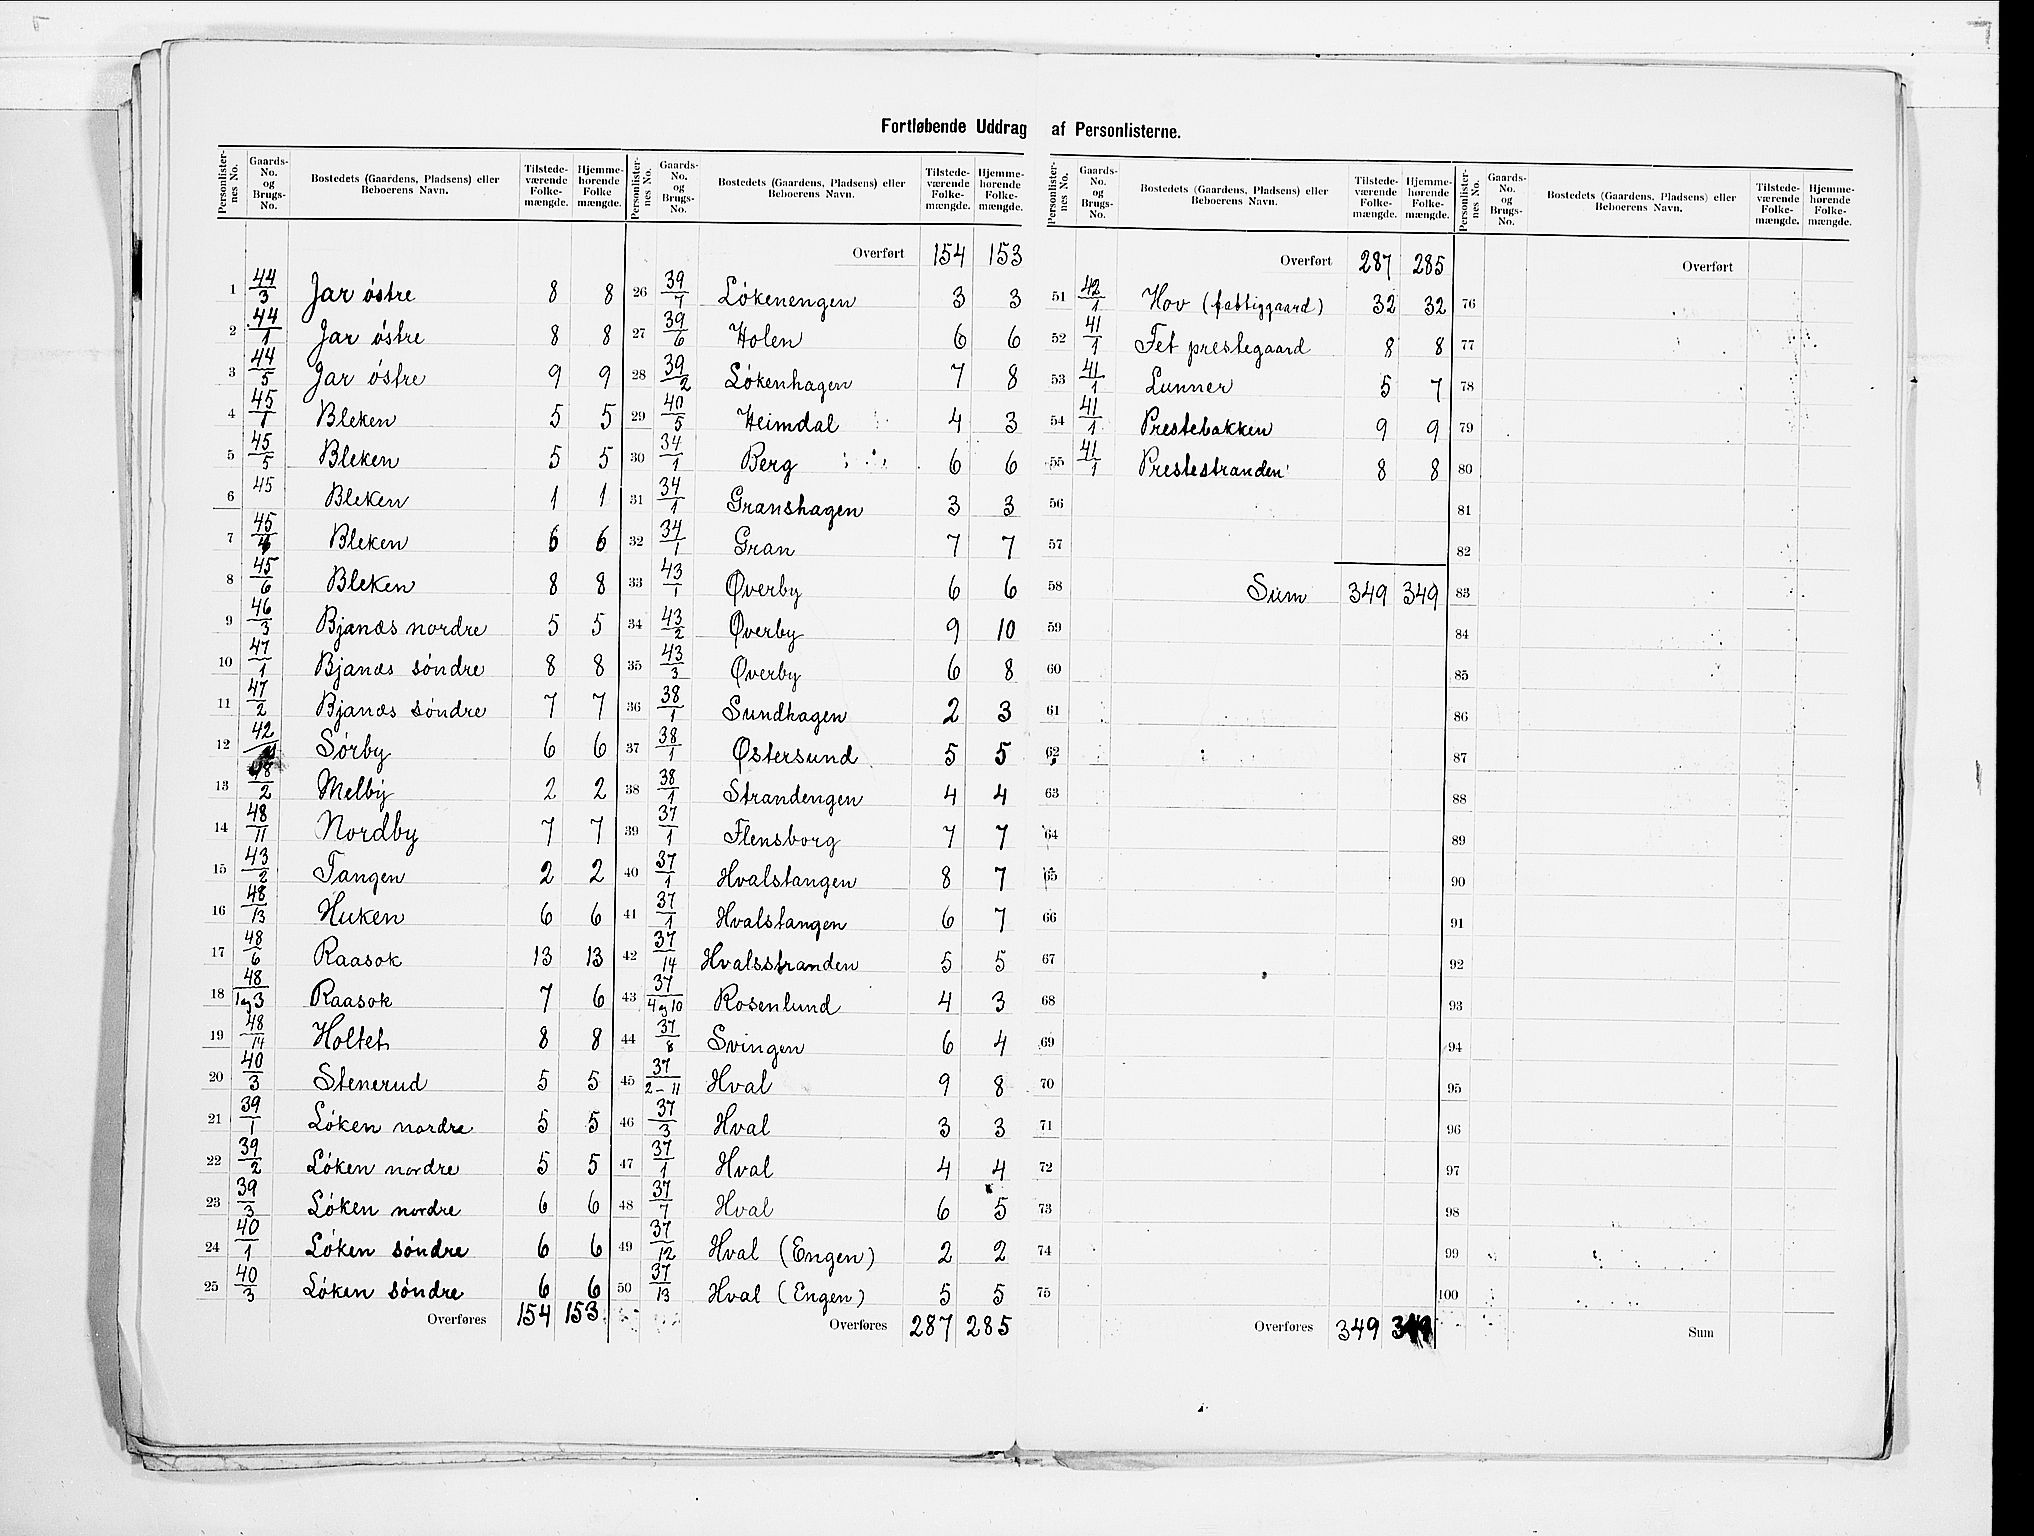 Fortløbende Uddrag af Personlisterne.
Personlister- nes No. | Gaards- No. og Brugs- No. | Bostedets (Gaardens, Pladsens) eller Beboerens Navn. | Tilstede- værende Folke- mængde. | Hjemme- hørende Folke mængde.
1 44/3 Jar östre 8 8
2 44/1 Jar östre 8 8
3 44/5 Jar östre 9 9
4 45/1 Bleken 5 5
5 45/5 Bleken 5 5
6 45 Bleken 1 1
7 45/4 Bleken 6 6
8 45/6 Bleken 8 8
9 46/3 Bjanæs nordre 5 5
10 47/1 Bjanæs söndre 8 8
11 47/2 Bjanæs söndre 7 7
12 42/ Sörby 6 6
13 48/2 Melby 2 2
14 48/11 Nordby 7 7
15 43/2 Tangen 2 2
16 48/13 Huken 6 6
17 48/6 Raasok 13 13
18 48/1 og 3 Raasok 7 6
19 48/14 Holtet 8 8
20 40/3 Stenerud 5 5
21 39/1 Löken nordre 5 5
22 39/2 Löken nordre 5 5
23 39/3 Löken nordre 6 6
24 40/1 Löken söndre 6 6
25 40/3 Löken söndre 6 6
Overføres 154 153
Personlister- nes No. | Gaards- No. og Brugs- No. | Bostedets (Gaardens, Pladsens) eller Beboerens Navn. | Tilstede- værende Folke- mængde. | Hjemme- hørende Folke- mængde.
Overført 154 153
26 39/7 Lökenengen 3 3
27 39/6 Holen 6 6
28 39/2 Lökenhagen 7 8
29 40/5 Heimdal 4 3
30 34/1 Berg 6 6
31 34/1 Granshagen 3 3
32 34/1 Gran 7 7
33 43/1 Øverby 6 6
34 43/2 Øverby 9 10
35 43/3 Øverby 6 8
36 38/1 Sundhagen 2 3
37 38/1 Østersund 5 5
38 38/1 Strandengen 4 4
39 37/1 Flensborg 7 7
40 37/1 Hvalstangen 8 7
41 37/1 Hvalstangen 6 7
42 37/14 Hvalsstranden 5 5
43 37/4 og 10 Rosenlund 4 3
44 37/8 Svingen 6 4
45 37/2-11 Hval 9 8
46 37/3 Hval 3 3
47 37/1 Hval 4 4
48 37/7 Hval 6 5
49 37/12 Hval (Engen) 2 2
50 37/13 Hval (Engen) 5 5
Overføres 287 285
Personlister- nes No. | Gaards- No. og Brugs- No. | Bostedets (Gaardens, Pladsens) eller Beboerens Navn. | Tilstede- værende Folke- mængde. | Hjemme- hørende Folke- mængde.
Overført 287 285
51 42/1 Hov (fattiggaard) 32 32
52 41/1 Fet prestegaard 8 8
53 41/1 Lunner 5 7
54 41/1 Prestebakken 9 9
55 41/1 Prestestranden 8 8
56
57
58 Sum 349 349
59
60
61
62
63
64
65
66
67
68
69
70
71
72
73
74
75
Overføres 349 349
Personlister- nes No. | Gaards- No. og Brugs- No. | Bostedets (Gaardens, Pladsens) eller Beboerens Navn. | Tilstede- værende Folke- mængde. | Hjemme- hørende Folke- mængde.
Overført
76
77
78
79
80
81
82
83
84
85
86
87
88
89
90
91
92
93
94
95
96
97
98
99
100
Sum